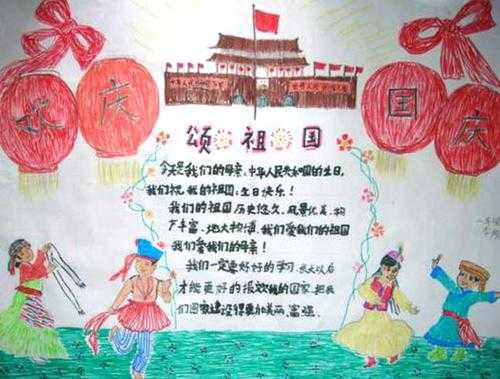 欢庆
国庆
颂祖国
今天是我们的母亲:中华人民共和国的生日,
我们祝我的祖国,生日快乐!
我们的祖国历史悠久、风景优美、物
产丰富、地大物博,我们爱我们的祖国
我们爱我们的母亲!
我们一定要好好的学习,长大以后
才能更好的报效我的国家,把我
们国家建设得更加美丽、富强.